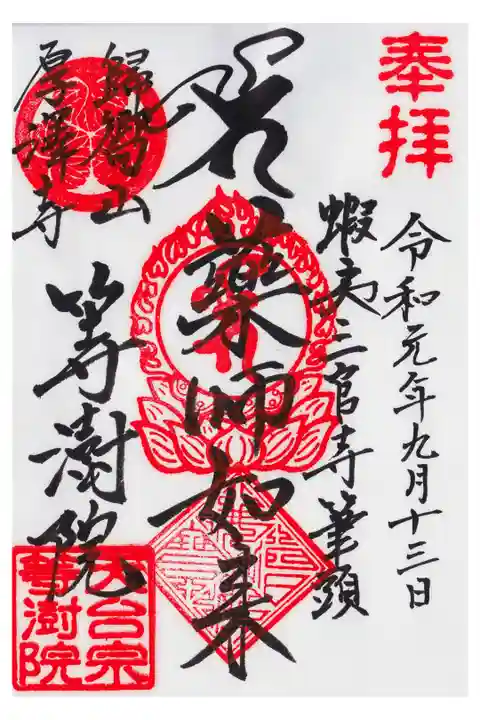 奉拝
令和元年九月十三日
蝦夷三官寺筆頭
薬師如来
歸嚮山
厚澤寺
等澍院
天台宗
等澍院